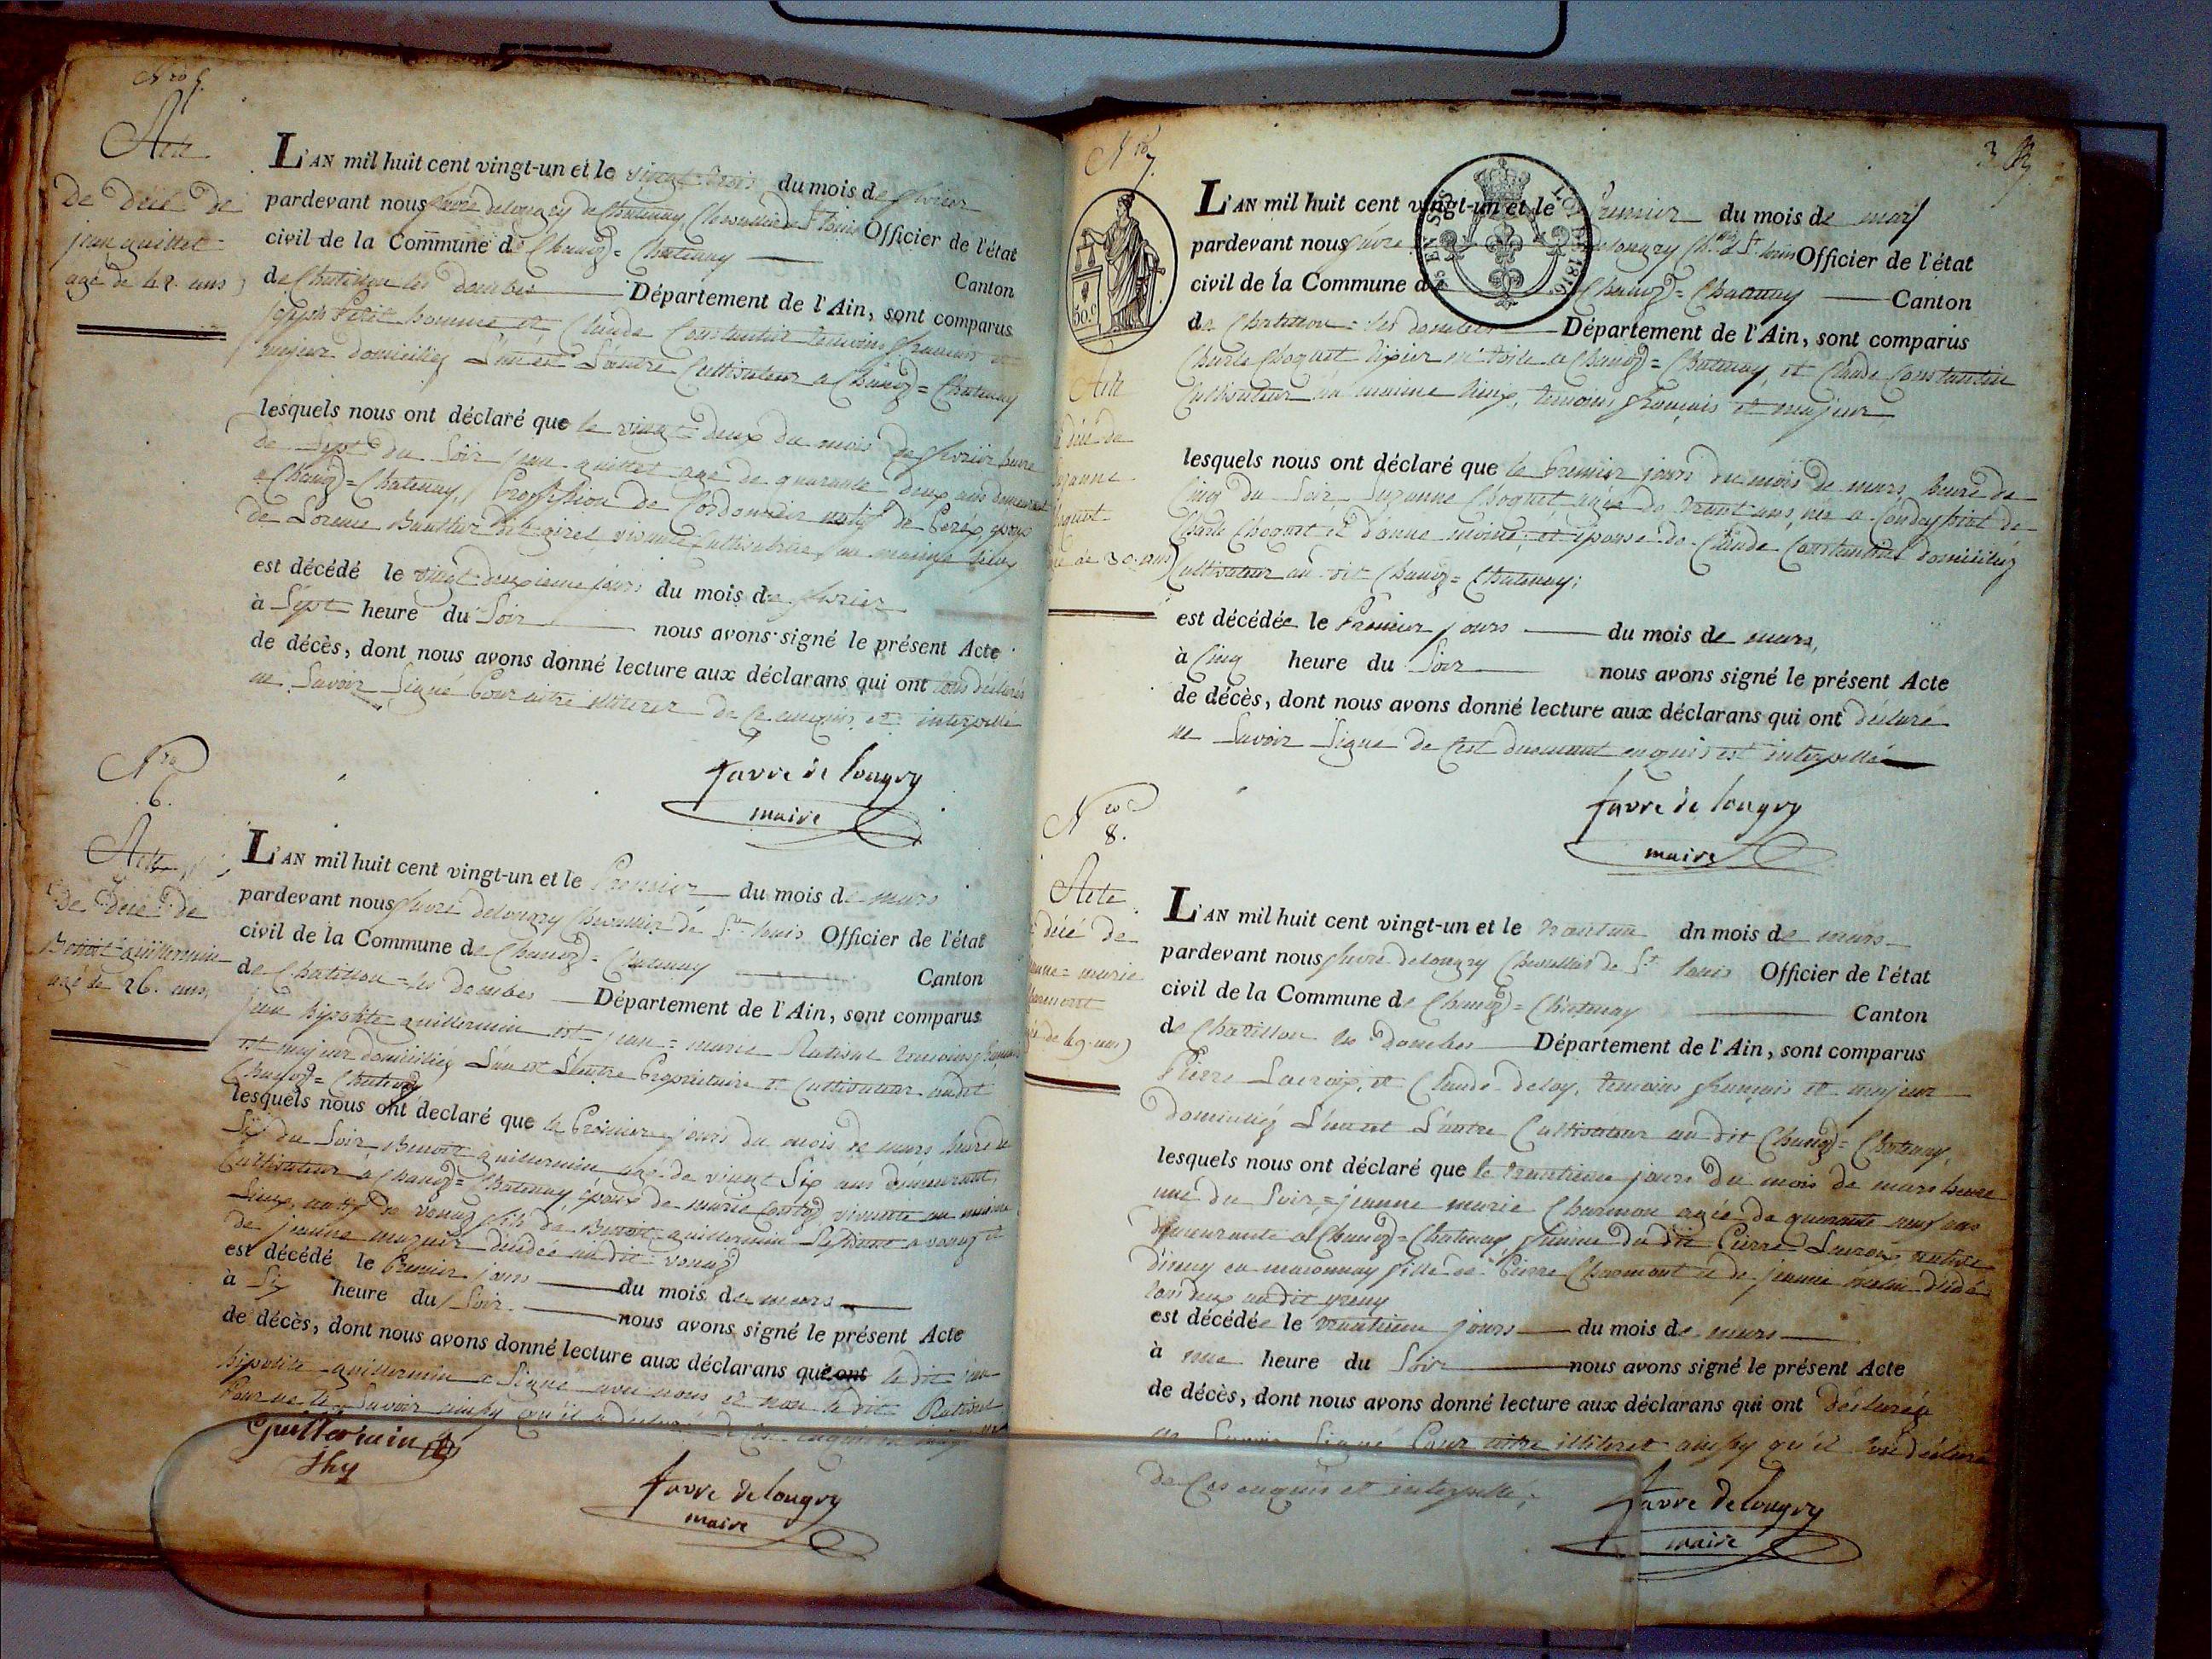 Nro 5.
Acte
de décé de
jean quillet
agé de 42. ans
L'AN mil huit cent vingt-un et le vingt trois du mois de fevrier
pardevant nous favre delongry de chatenay Chevallier de St. louis Officier de l'état
civil de la Commune de Chanoz = Chatenay Canton
de Chatillon les dombes Département de l'Ain, sont comparus
joseph Petit homme et Claude Constantin temoins francois et
majeur domiciliez L'un et L'autre Cultivateur a Chanoz = Chatenay
lesquels nous ont déclaré que le vingt deux du mois de fevrier heure
de Sept du Soir jean quillet agé de quarante deux ans demeurant
a Chanoz = Chatenay, Proffession de Cordonnier natif de Peréx, epoux
de Lorence vivante Cultivatrice au maime lieux
est décédé le vingt deuxieme jours du mois de fevrier
à Sept heure du Soir nous avons signé le présent Acte
de décès, dont nous avons donné lecture aux déclarans qui ont tous déclarés
ne Savoir Signé Pour aitre illiteret de Ce enquis et interpellé
favre de longry
maire
Nro
6.
Acte
de décé de
Benoit quillermin
agé de 26. ans
L'AN mil huit cent vingt-un et le Premier du mois de mars
pardevant nous favre delongry Chevallier de St. louis Officier de l'état
civil de la Commune de Chanoz = Chatenay Canton
de Chatillon = les dombes Département de l'Ain, sont comparus
jean hipolite quillermin et jean = marie Rativat temoins francais
et majeur domiciliez L'un et L'autre Proprietaire et Cultivateur audit
Chanoz = Chatenay
lesquels nous ont declaré que le Premier jours du mois de mars heure de
Six du Soir, Benoit quillermin agé de vingt Six ans demeurant,
Cultivateur a Chanoz = Chatenay, époux de marie vivante au maime
Lieux, natif de vonnaz fils de Benoit quillermin a vonnaz et
de jeanne décédée au dit vonnaz
est décédé le Premier jours du mois de mars
à Six heure du Soir nous avons signé le présent Acte
de décès, dont nous avons donné lecture aux déclarans qui ont le dit jean
hipolite quillermin a Signé avec nous et non le dit Rativat
Pour ne le Savoir ainsy qu'il a déclaré de Ce enquis
Guillermin
Thy
favre delongry
maire
3
Nro 7.
50.C
Acte
décé de
Suzanne
Choquet
agé de 30. ans
L'AN mil huit cent vingt-un et le Premier du mois de mars
pardevant nous favre delongry Ch.er de St. louis Officier de l'état
civil de la Commune de Chanoz = Chatenay Canton
de Chatillon = les dombes Département de l'Ain, sont comparus
Charle Choquet tixier en toile a Chanoz = Chatenay, et Claude Constantin
Cultivateur au maime lieux, temoins francais et majeur
lesquels nous ont déclaré que le Premier jours du mois de mars, heure de
Cinq du Soir, Suzanne Choquet agée de trent ans, née a Condeyssiat de
Charle Choquet et d'anne moine, et épouse de Claude Constantin domiciliez
Cultivateur au dit Chanoz = Chatenay;
est décédée le Premier jours du mois de mars,
à Cinq heure du Soir nous avons signé le présent Acte
de décès, dont nous avons donné lecture aux déclarans qui ont déclaré
ne Savoir Signé de Cest duement enquis est interpellé
favre de longry
maire
Nro
8.
Acte
décé de
jeanne = marie
Charmont
agée de 49. ans
L'AN mil huit cent vingt-un et le trentun dn mois de mars
pardevant nous favre delongry Chevallier de St. louis Officier de l'état
civil de la Commune de Chanoz = Chatenay Canton
de Chatillon les dombes Département de l'Ain, sont comparus
Pierre Lacroix, et Claude deloy, temoins francais et majeur
domiciliez L'un et L'autre Cultivateur au dit Chanoz = Chatenay,
lesquels nous ont déclaré que le trentieme jours du mois de mars heure
une du Soir = jeanne marie Charmon agée de quarante neuf ans
demeurante a Chanoz = Chatenay femme du dit Pierre Lacroix native
en maconnay fille de Pierre Charmont et de jeanne décédé
tous deux au dit
est décédée le trentieme jours du mois de mars
à une heure du Soir nous avons signé le présent Acte
de décès, dont nous avons donné lecture aux déclarans qui ont déclarés
ne Savoir Signé Pour aitre illiteret ainsy qu'il déclaré
de Ces enquis et interpellé;
favre delongry
maire